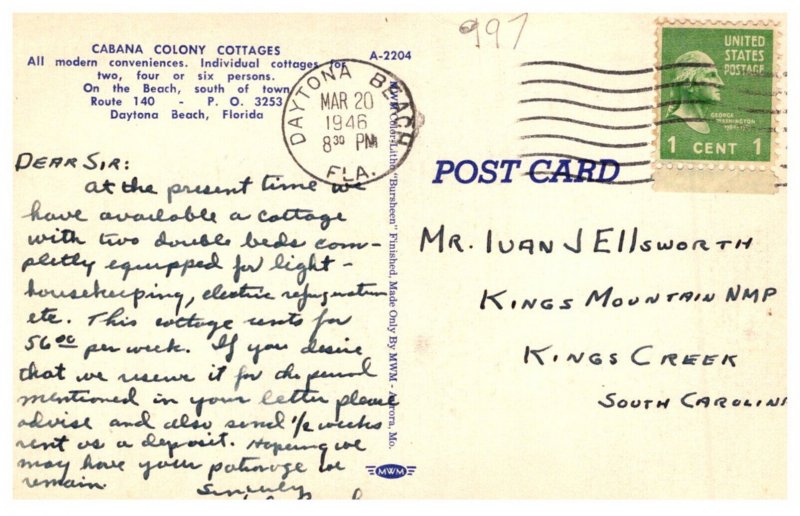 997
CABANA COLONY COTTAGES
All modern conveniences. Individual cottages for
two, four or six persons.
On the Beach, south of town
Route 140 - P. O. 3253
Daytona Beach, Florida
A-2204
DAYTONA BEACH
MAR 20
1946
8 30 PM
FLA.
UNITED
STATES
POSTAGE
GEORGE
WASHINGTON
1 CENT 1
POST CARD
MWM Color-Litho "Bursheen" Finished, Made Only By MWM - Aurora, Mo.
MWM
DEAR SIR:
At the present time we
have available a cottage
with two double beds com-
pletly equipped for light-
housekeeping, electric refrigeration
etc. This cottage rents for
56 00 per week. If you desire
that we reserve it for the period
mentioned in your letter please
advise and also send 1/2 weeks
rent as a deposit. Hoping we
may have your patronage we
remain.
Sincerely
MR. IVAN J ELLSWORTH
KINGS MOUNTAIN NMP
KINGS CREEK
SOUTH CAROLINA